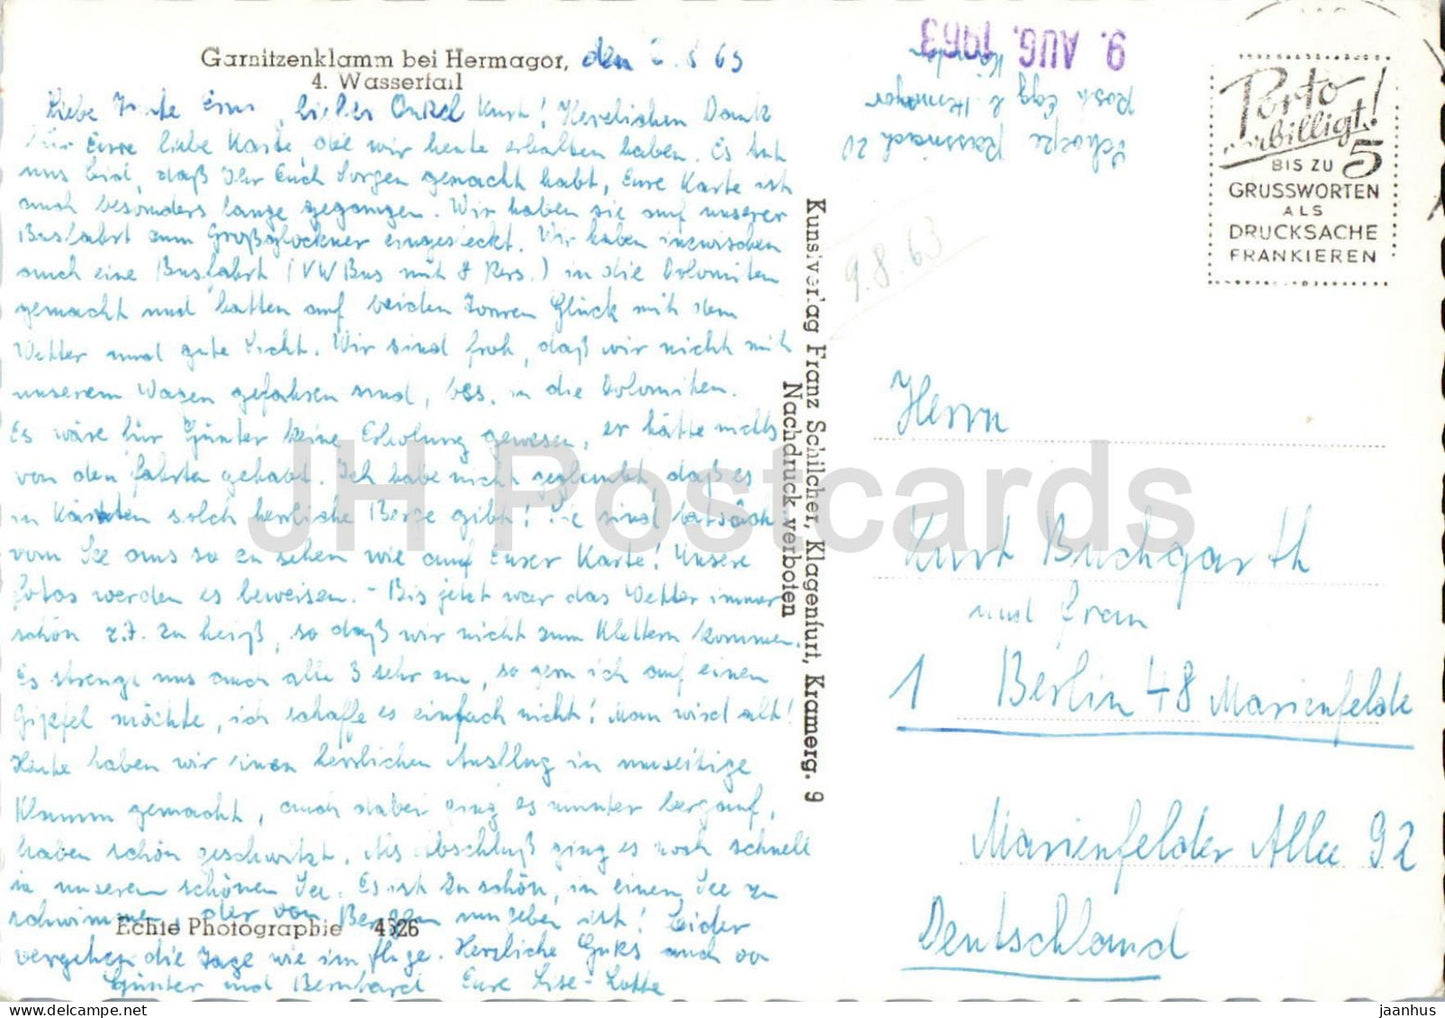 Garnitzenklamm bei Hermagor, den 8 63
4. Wasserfall
Liebe Tante Erna, lieber Onkel Kurt! Herzlichen Dank
für Eure liebe Karte, die wir heute erhalten haben. Es tut
uns leid, daß Ihr Euch Sorgen gemacht habt, Eure Karte ist
auch besonders lange gegangen. Wir haben sie auf unserer
Busfahrt zum Großglockner eingesteckt. Wir haben inzwischen
auch eine Busfahrt (VW Bus mit 8 Pers.) in die Dolomiten
gemacht und hatten auf beiden Touren Glück mit dem
Wetter und gute Sicht. Wir sind froh, daß wir nicht mit
unserem Wagen gefahren sind, bes. in die Dolomiten.
Es wäre für Günter keine Erholung gewesen, er hätte nichts
von den Fahrten gehabt. Ich habe nicht geglaubt, daß es
in Kärnten solch herrliche Berge gibt! Sie sind tatsächl.
vom See aus so zu sehen wie auf Eurer Karte! Unsere
Fotos werden es beweisen. - Bis jetzt war das Wetter immer
schön z.T. zu heiß, so daß wir nicht zum Klettern kommen.
Es strengt uns auch alle 3 sehr an, so gern ich auf einen
Gipfel möchte, ich schaffe es einfach nicht! Man wird alt!
Heute haben wir einen herrlichen Ausflug in umseitige
Klamm gemacht, auch dabei ging es munter bergauf,
haben schön geschwitzt. Als Abschluß ging es noch schnell
in unseren schönen See. Es ist zu schön, in einem See zu
schwimmen, der von Bergen umgeben ist! Leider
Echte Photographie 4526
vergehen die Tage wie im Fluge. Herzliche Grüße auch von
Günter und Bernhard Eure Lise-Lotte
Kunstverlag Franz Schilcher, Klagenfurt, Kramerg. 9
Nachdruck verboten
9. AUG. 1963
Rassnach 20
Post Egg b. Hermagor
Kärnten
9.8.63
Porto
verbilligt!
BIS ZU 5
GRUSSWORTEN
ALS
DRUCKSACHE
FRANKIEREN
Herrn
Kurt Buchgarth
und Frau
1 Berlin 48 Marienfelde
Marienfelder Allee 92
Deutschland
JH Postcards
jaanhus